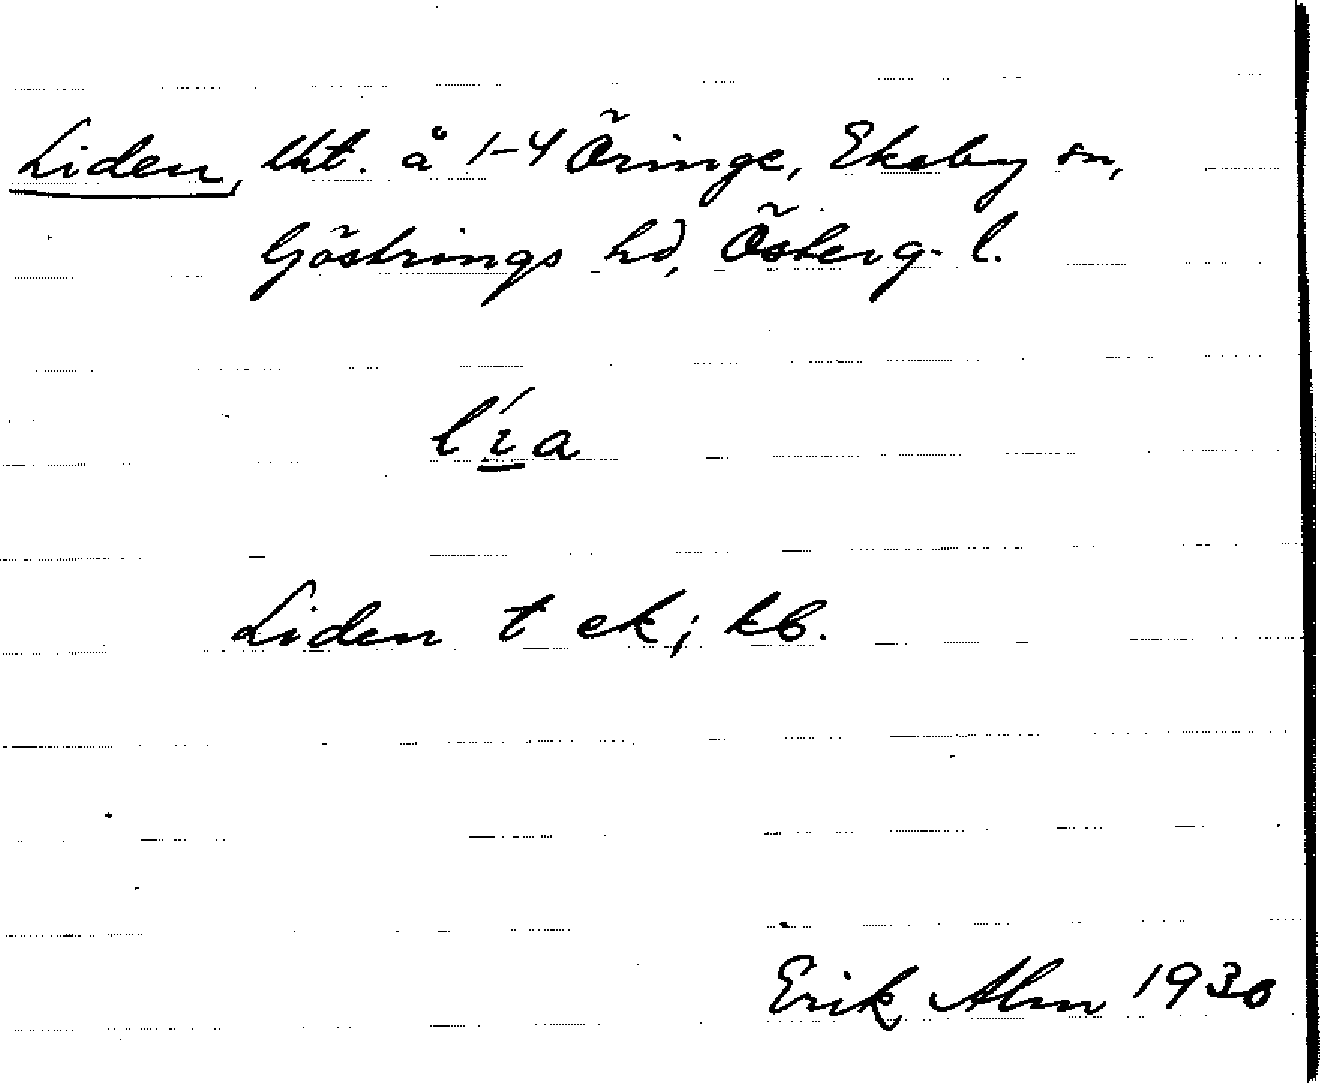 Liden, lht. å 1-4 Öringe, Ekeby sn,
Göstrings hd, Österg. l.
lí̱a
Liden t ek; kb.
Erik Alm 1930